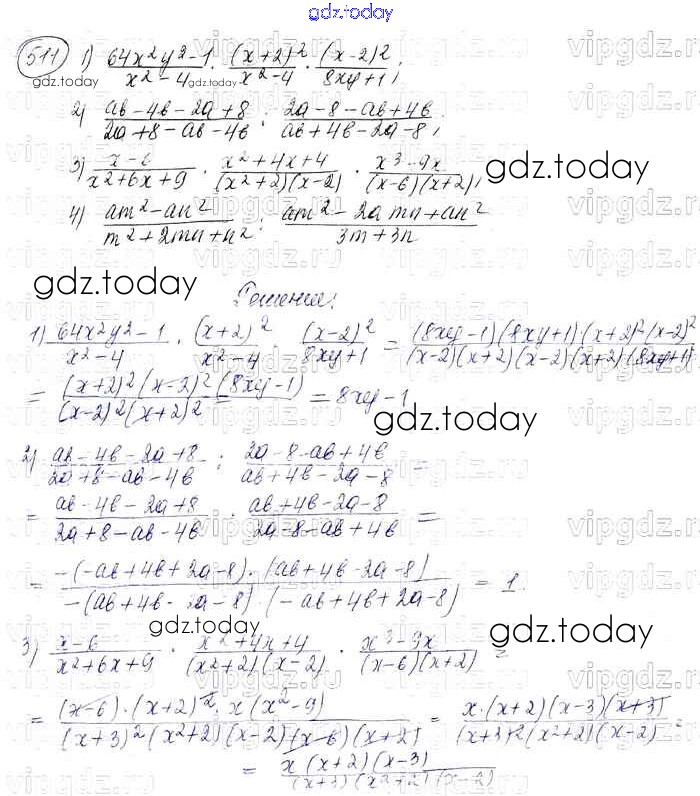 gdz.today
511 1) \frac{64x²y²-1}{x²-4} · \frac{(x+2)²}{x²-4} · \frac{(x-2)²}{8xy+1};
gdz.today gdz.today
2) \frac{ab-4b-2a+8}{2a+8-ab-4b} : \frac{2a-8-ab+4b}{ab+4b-2a-8};
3) \frac{x-6}{x²+6x+9} · \frac{x²+4x+4}{(x²+2)(x-2)} · \frac{x³-9x}{(x-6)(x+2)};
gdz.today
4) \frac{am²-an²}{m²+2mn+n²} : \frac{am²-2amn+an²}{3m+3n}
gdz.today
Решение:
1) \frac{64x²y²-1}{x²-4} · \frac{(x+2)²}{x²-4} · \frac{(x-2)²}{8xy+1} = \frac{(8xy-1)(8xy+1)·(x+2)²(x-2)²}{(x-2)(x+2)(x-2)(x+2)(8xy+1)}
= \frac{(x+2)²(x-2)²(8xy-1)}{(x-2)²(x+2)²} = 8xy-1
gdz.today
2) \frac{ab-4b-2a+8}{2a+8-ab-4b} : \frac{2a-8-ab+4b}{ab+4b-2a-8} =
= \frac{ab-4b-2a+8}{2a+8-ab-4b} · \frac{ab+4b-2a-8}{2a-8-ab+4b} =
gdz.today
= \frac{-(-ab+4b+2a-8)·(ab+4b-2a-8)}{-(ab+4b-2a-8)·(-ab+4b+2a-8)} = 1.
gdz.today gdz.today
3) \frac{x-6}{x²+6x+9} · \frac{x²+4x+4}{(x²+2)(x-2)} · \frac{x³-9x}{(x-6)(x+2)} =
= \frac{(x-6)·(x+2)²·x(x²-9)}{(x+3)²(x²+2)(x-2)(x-6)(x+2)} = \frac{x·(x+2)(x-3)(x+3)}{(x+3)²(x²+2)(x-2)} =
= \frac{x(x+2)(x-3)}{(x+3)(x²+2)(x-2)}
gdz.today